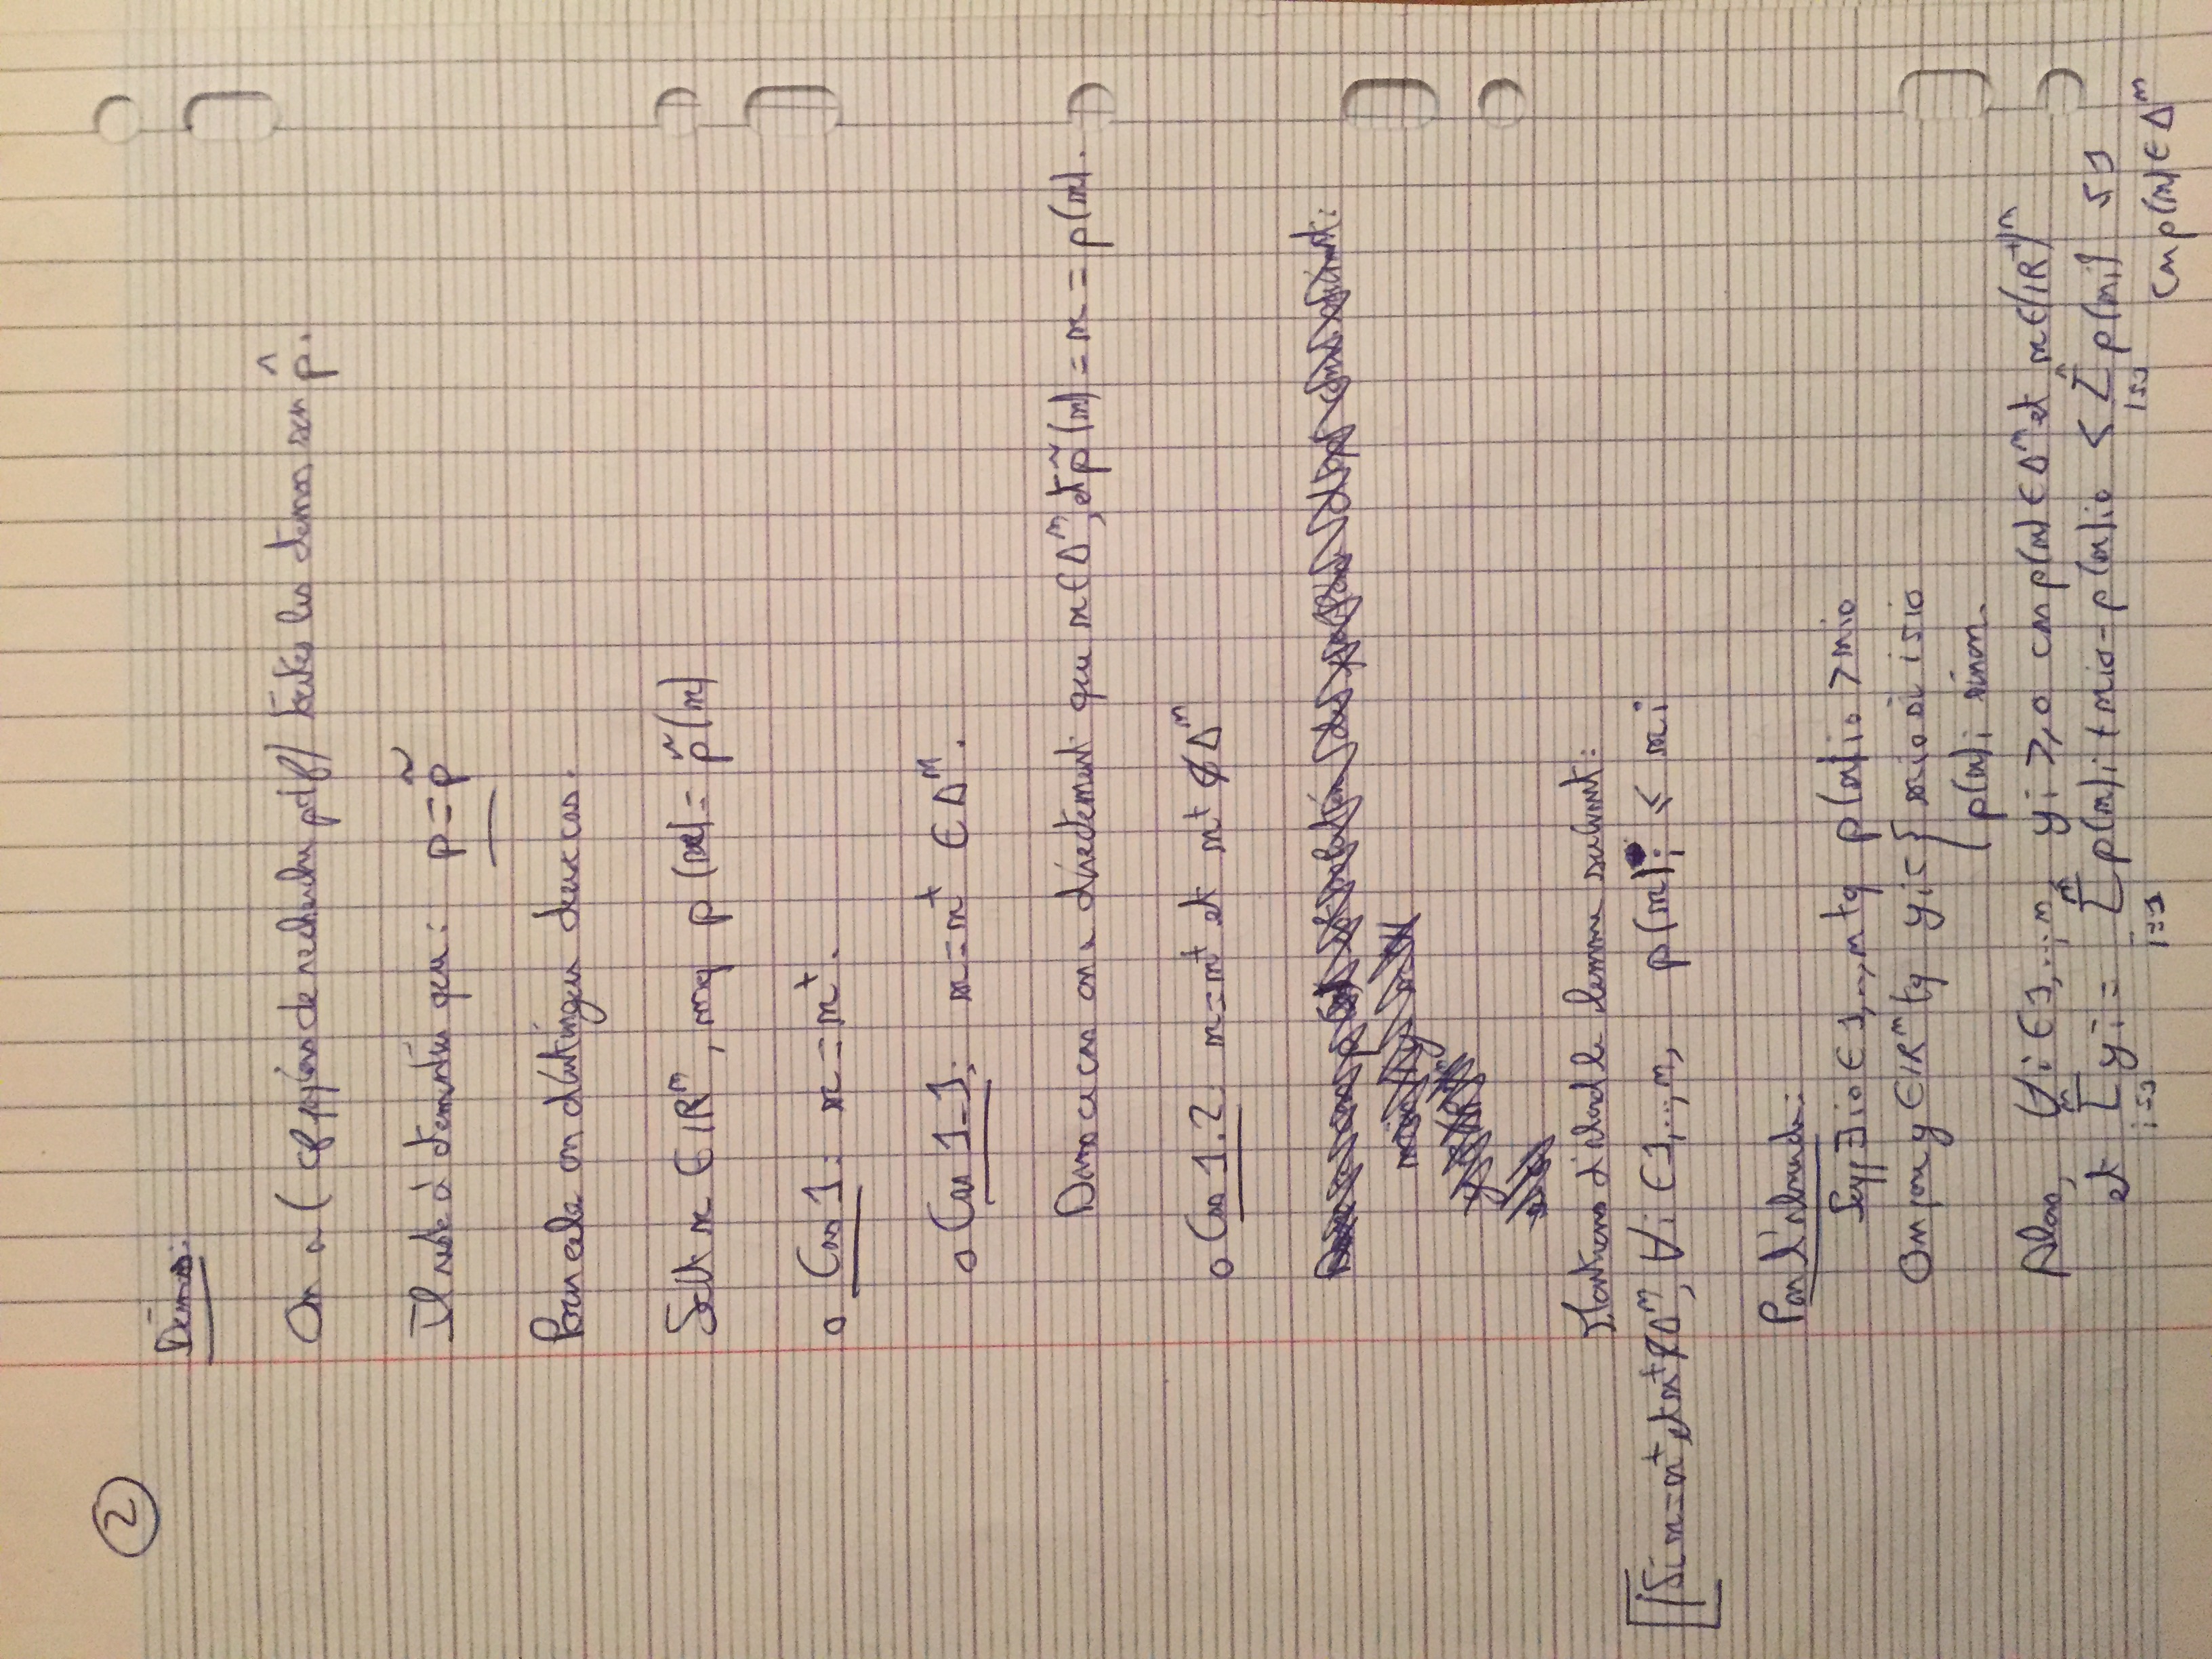 2
Démo:
On a (cf de recherche pdf) toutes les démos sur p̂.
Il reste à démontrer que : p = p̃
Pour cela on distingue deux cas.
Soit x ∈ IRⁿ, mq p(x) = p̃(x)
o Cas 1: x = x⁺.
o Cas 1.1: x = x⁺ ∈ Δⁿ.
Dans ce cas on a directement que x ∈ Δⁿ, et p̃(x) = x = p(x).
o Cas 1.2 x = x⁺ et x⁺ ∉ Δⁿ
Montrons d'abord le lemme suivant:
Si x = x⁺ et x⁺ ∉ Δⁿ, ∀i ∈ 1,..,n, p(x)i ≤ xi
Par l'absurde:
Supp ∃ i0 ∈ 1,..,n tq p(x)i0 > xi0
On pose y ∈ IRⁿ tq yi = { xi0 si i = i0
p(x)i sinon.
Alors, ∀i ∈ 1,..,n, yi ≥ 0 car p(x) ∈ Δⁿ et x ∈ (IR⁺)ⁿ
et Σ yi = Σ p(x)i + xi0 - p(x)i0 < Σ p(xi) ≤ 1
i=1 i=1 i=1
car p(x) ∈ Δⁿ